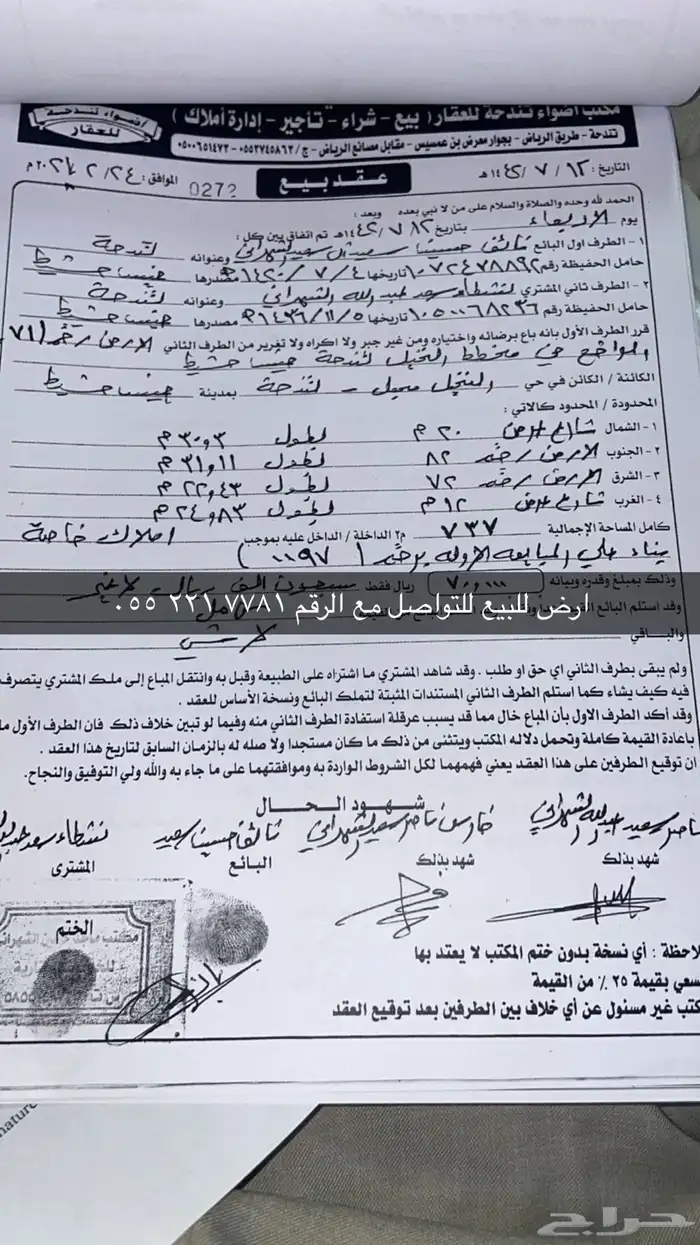 أضواء تندحة
للعقار
مكتب أضواء تندحة للعقار ( بيع - شراء - تأجير - إدارة أملاك )
تندحة - طريق الرياض - بجوار معرض بن عمسيس - مقابل مصانع الرياض - ج/ ٠٥٥٢٧٤٥٨٦٢ - ٠٥٠٠٦٥١٤٧٢
التاريخ : ١٢ / ٧ / ١٤٤٢هـ
عقد بيع
0272
الموافق : ٢٤ / ٢ / ٢٠٢١م
الحمد لله وحده والصلاة والسلام على من لا نبي بعده وبعد :
يوم الأربعاء بتاريخ ١٢ / ٧ / ١٤٤٢هـ تم اتفاق بين كل :
١ - الطرف اول البائع سعيد الشهراني وعنوانه تندحة
حامل الحفيظة رقم ١٠٧٢٤٧٨٨٩٢ تاريخها ٤ / ٧ / ١٤٢٠هـ مصدرها خميس مشيط
٢ - الطرف ثاني المشتري سعد عبدالله الشهراني وعنوانه تندحة
حامل الحفيظة رقم ١٠٥٠٠٦٨٢٣٦ تاريخها ٥ / ١١ / ١٤٣٦هـ مصدرها خميس مشيط
قرر الطرف الأول بانه باع برضائه واختياره ومن غير جبر ولا اكراه ولا تغرير من الطرف الثاني الأرض رقم (٧١
الواقع في مخطط النخيل تندحة خميس مشيط
الكائنة / الكائن في حي النخيل - تندحة بمدينة خميس مشيط
المحدودة / المحدود كالاتي :
١ - الشمال شارع عرض ٢٠ م بطول ٣٠،٣ م
٢ - الجنوب الأرض رقم ٨٢ بطول ٣١،١١ م
٣ - الشرق الأرض رقم ٧٢ بطول ٢٢،٤٣ م
٤ - الغرب شارع عرض ١٢ م بطول ٢٤،٨٣ م
كامل المساحة الإجمالية ٧٣٧ م٢ الداخلة / الداخل عليه بموجب أملاك خاصة
بناء على المبايعة الأولى برقم ( ١١٩٧ )
وذلك بمبلغ وقدره وبيانه ٧٠،٠٠٠ ريال فقط سبعون ألف ريال لا غير
ارض للبيع للتواصل مع الرقم ٠٥٥ ٢٢١ ٧٧٨١
وقد استلم البائع
والباقي لا شي
ولم يبقى بطرف الثاني أي حق او طلب . وقد شاهد المشتري ما اشتراه على الطبيعة وقبل به وانتقل المباع إلى ملك المشتري يتصرف
فيه كيف يشاء كما استلم الطرف الثاني المستندات المثبتة لتملك البائع ونسخة الأساس للعقد .
وقد أكد الطرف الاول بأن المباع خال مما قد يسبب عرقلة استفادة الطرف الثاني منه وفيما لو تبين خلاف ذلك فان الطرف الأول
باعادة القيمة كاملة وتحمل دلاله المكتب ويتثنى من ذلك ما كان مستجدا ولا صله له بالزمان السابق لتاريخ هذا العقد .
ان توقيع الطرفين على هذا العقد يعني فهمهما لكل الشروط الواردة به وموافقتهما على ما جاء به والله ولي التوفيق والنجاح.
شهود الحال
ناصر سعيد عبدالله الشهراني
ناصر سعيد الشهراني
شهد بذلك
شهد بذلك
البائع
المشترى
الختم
لاحظة : أي نسخة بدون ختم المكتب لا يعتد بها
سعي بقيمة ٢٥ ٪ من القيمة
كتب غير مسئول عن أي خلاف بين الطرفين بعد توقيع العقد
nature
حراج